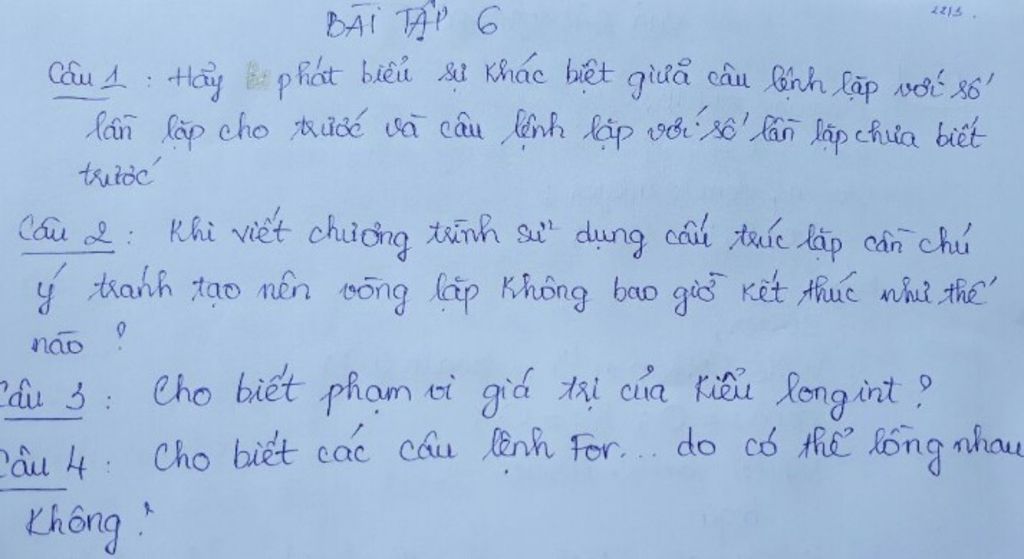 BÀI TẬP 6
22/3.
Câu 1 : Hãy phát biểu sự khác biệt giữa câu lệnh lặp với số
lần lặp cho trước và câu lệnh lặp với số lần lặp chưa biết
trước
Câu 2 : Khi viết chương trình sử dụng cấu trúc lặp cần chú
ý tránh tạo nên vòng lặp không bao giờ kết thúc như thế
nào ?
Câu 3 : Cho biết phạm vi giá trị của kiểu longint ?
Câu 4 : Cho biết các câu lệnh For... do có thể lồng nhau
không ?